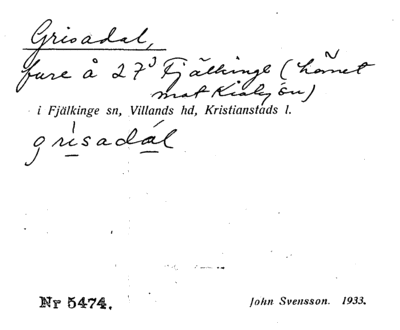 Grisadal,
fure å 27³ Fjälkinge (hörnet
mot Kiabyån)
i Fjälkinge sn, Villands hd, Kristianstads l.
grìsadál
Nr 5474.
John Svensson. 1933.